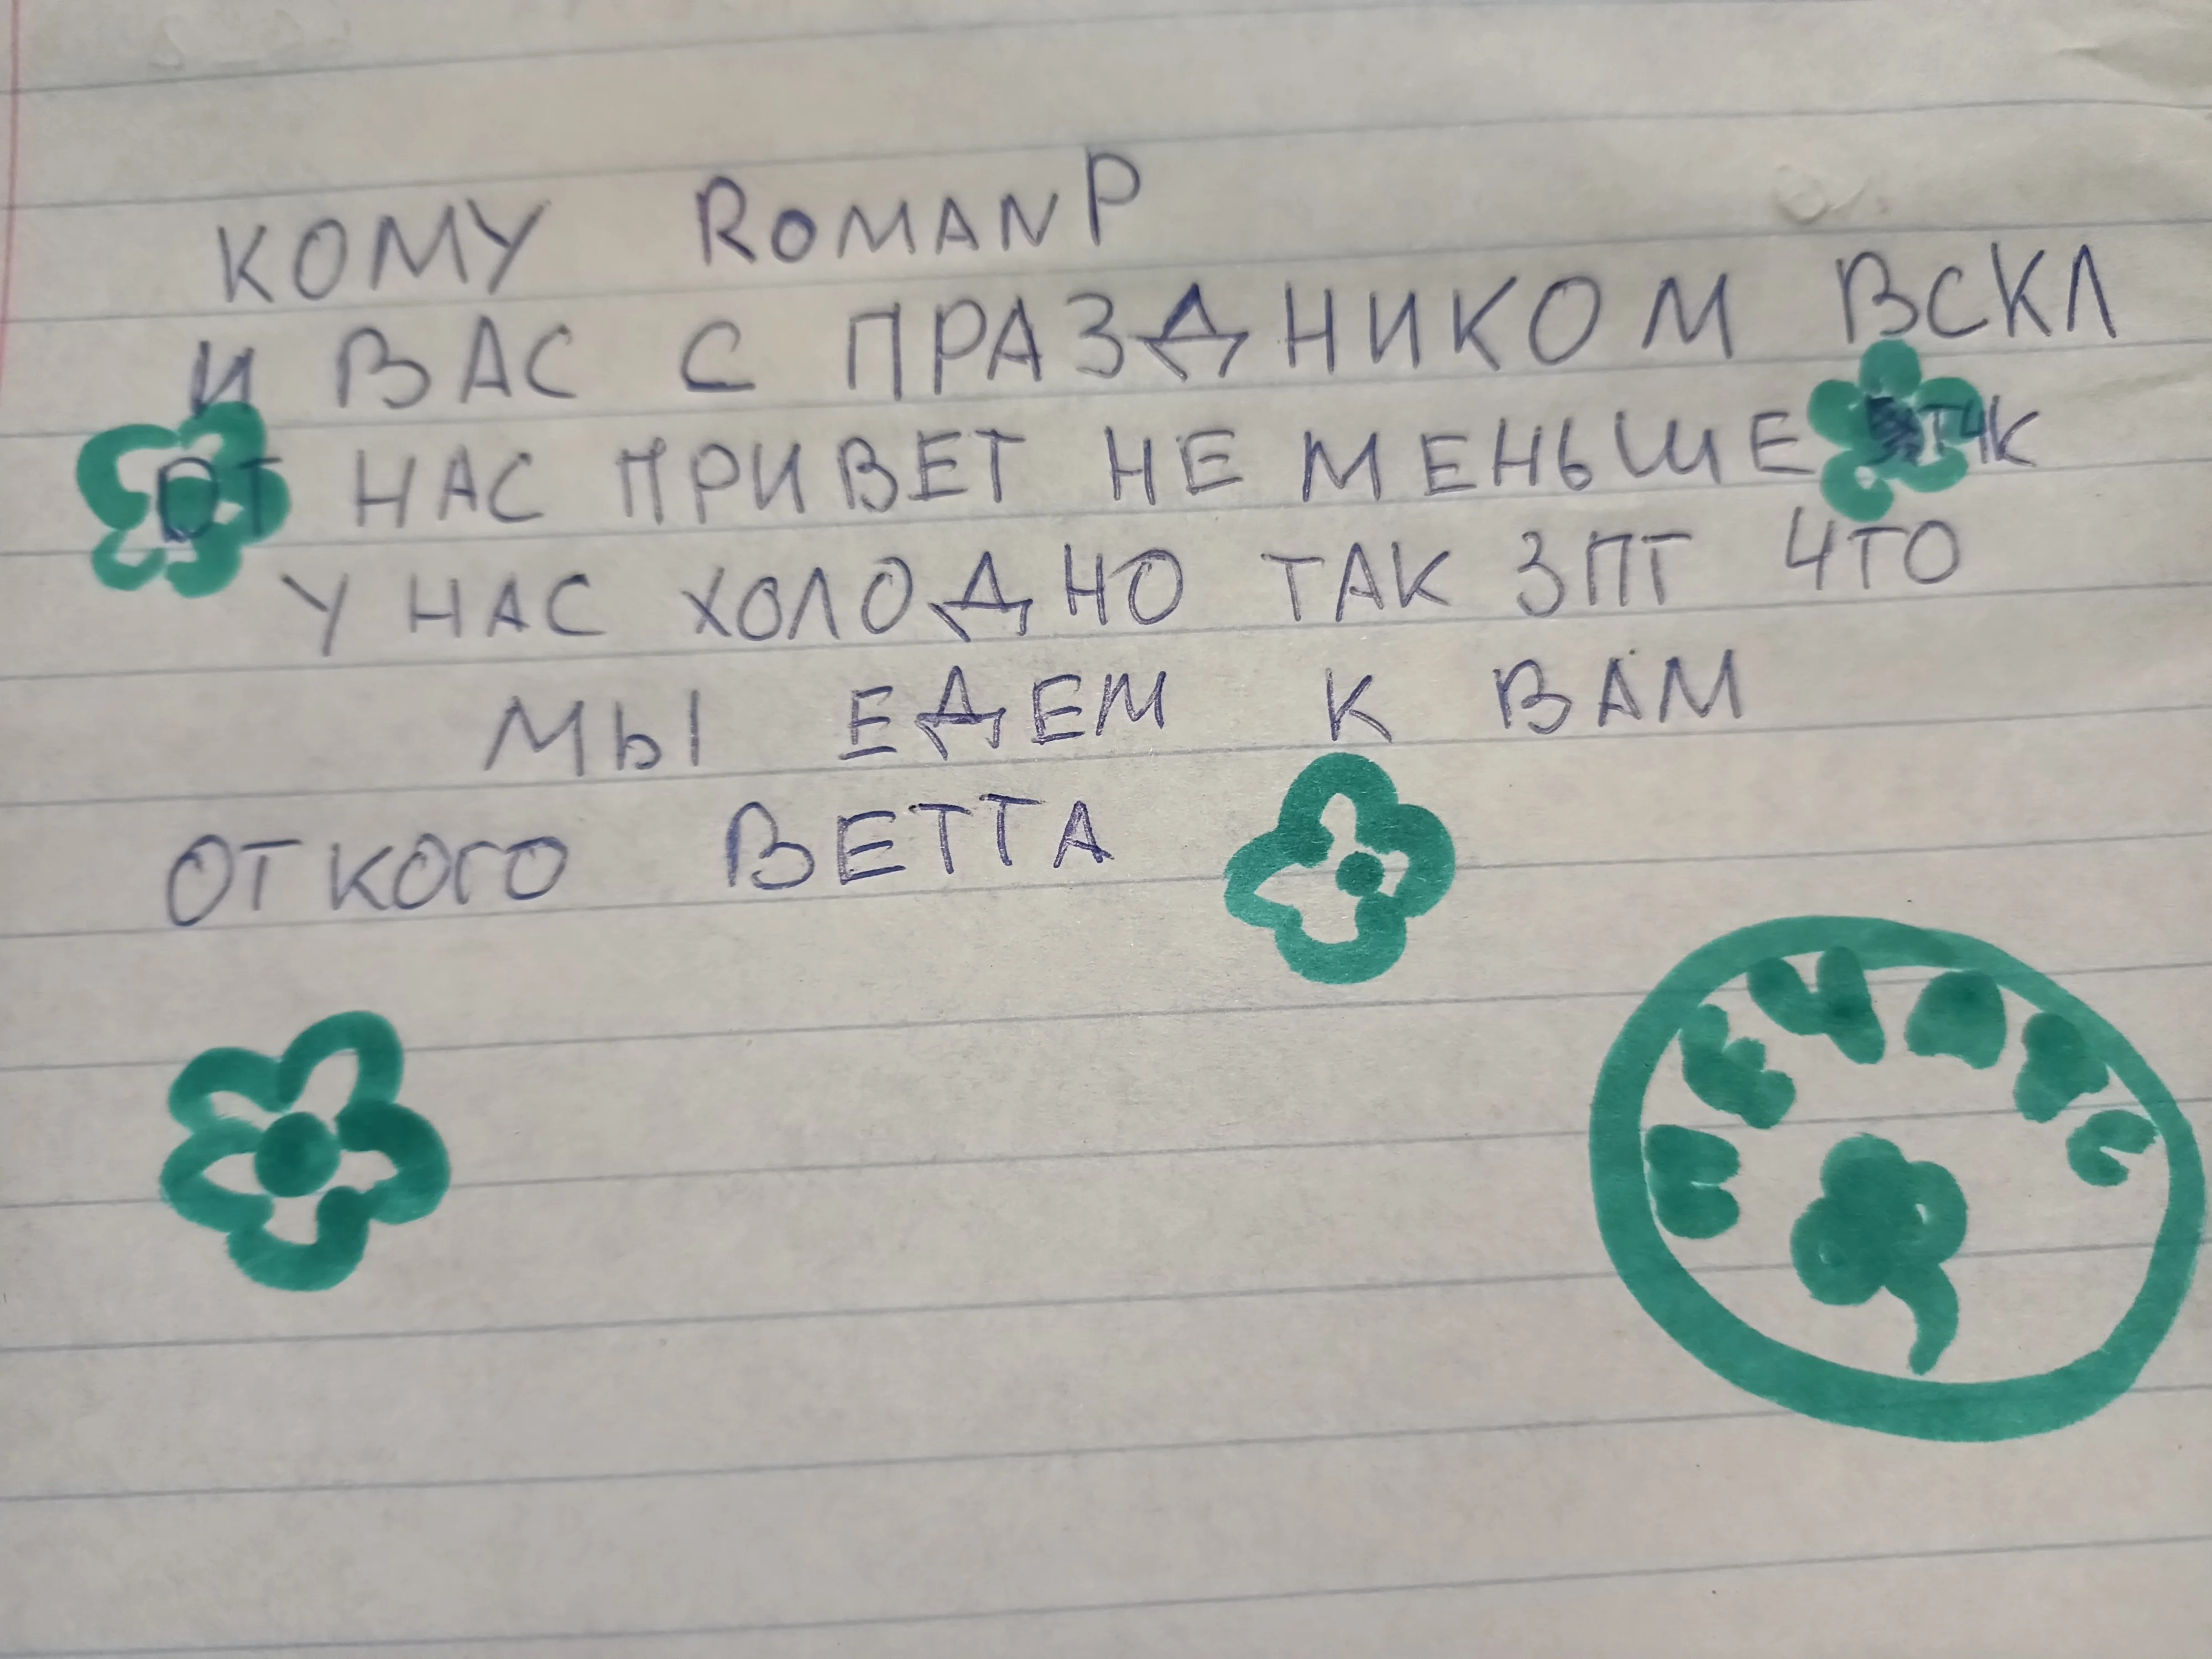 КОМУ ROMANP
И ВАС С ПРАЗДНИКОМ ВСКЛ
ОТ НАС ПРИВЕТ НЕ МЕНЬШЕ ТЧК
У НАС ХОЛОДНО ТАК ЗПТ ЧТО
МЫ ЕДЕМ К ВАМ
ОТ КОГО ВЕТТА